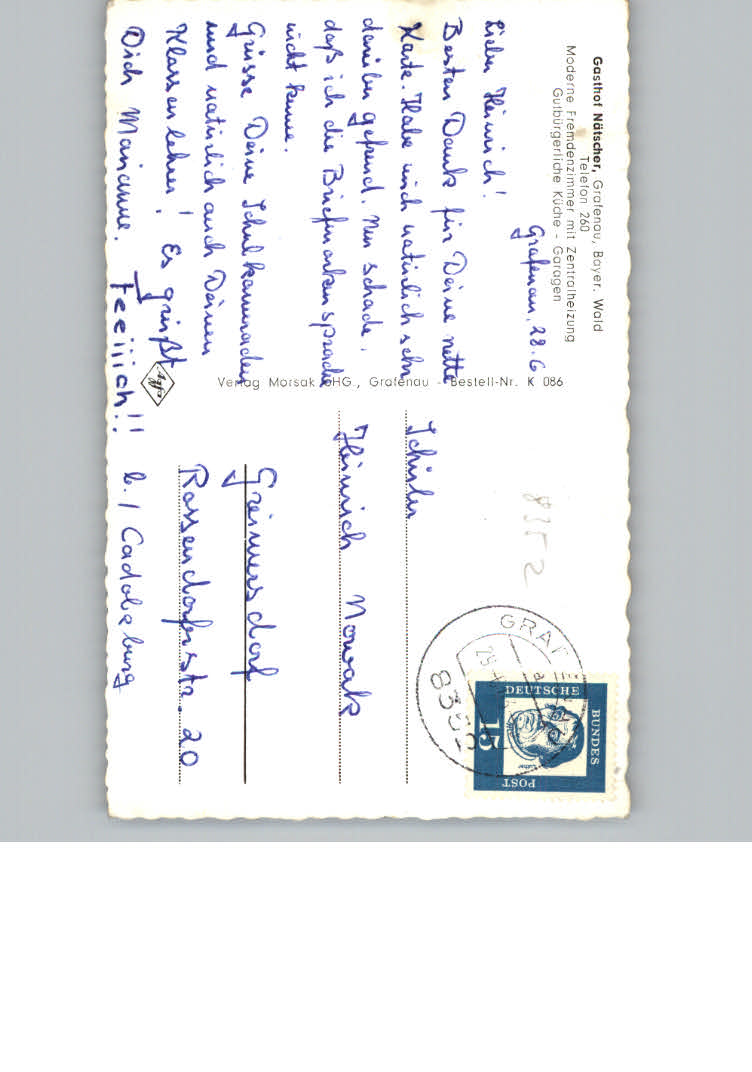 Gasthof Nätscher, Grafenau, Bayer. Wald
Telefon 260
Moderne Fremdenzimmer mit Zentralheizung
Gutbürgerliche Küche - Garagen
Grafenau, 28.6
Lieber Heinrich!
Besten Dank für Deine nette
Karte. Habe mich natürlich sehr
darüber gefreut. Nur schade,
daß ich die Briefmarkensprache
nicht kenne.
Grüsse Deine Schulkameraden
und natürlich auch Deinen
Klassenlehrer! Es grüßt
Dich Marianne.
Verlag Morsak OHG., Grafenau - Bestell-Nr. K 086
Agfa
8352
GRAFENAU
8352
DEUTSCHE
BUNDES
POST
15
Luther
Schüler
Heinrich Nowak
Greimersdorf
Rossendorferstr. 20
b./ Cadolzburg